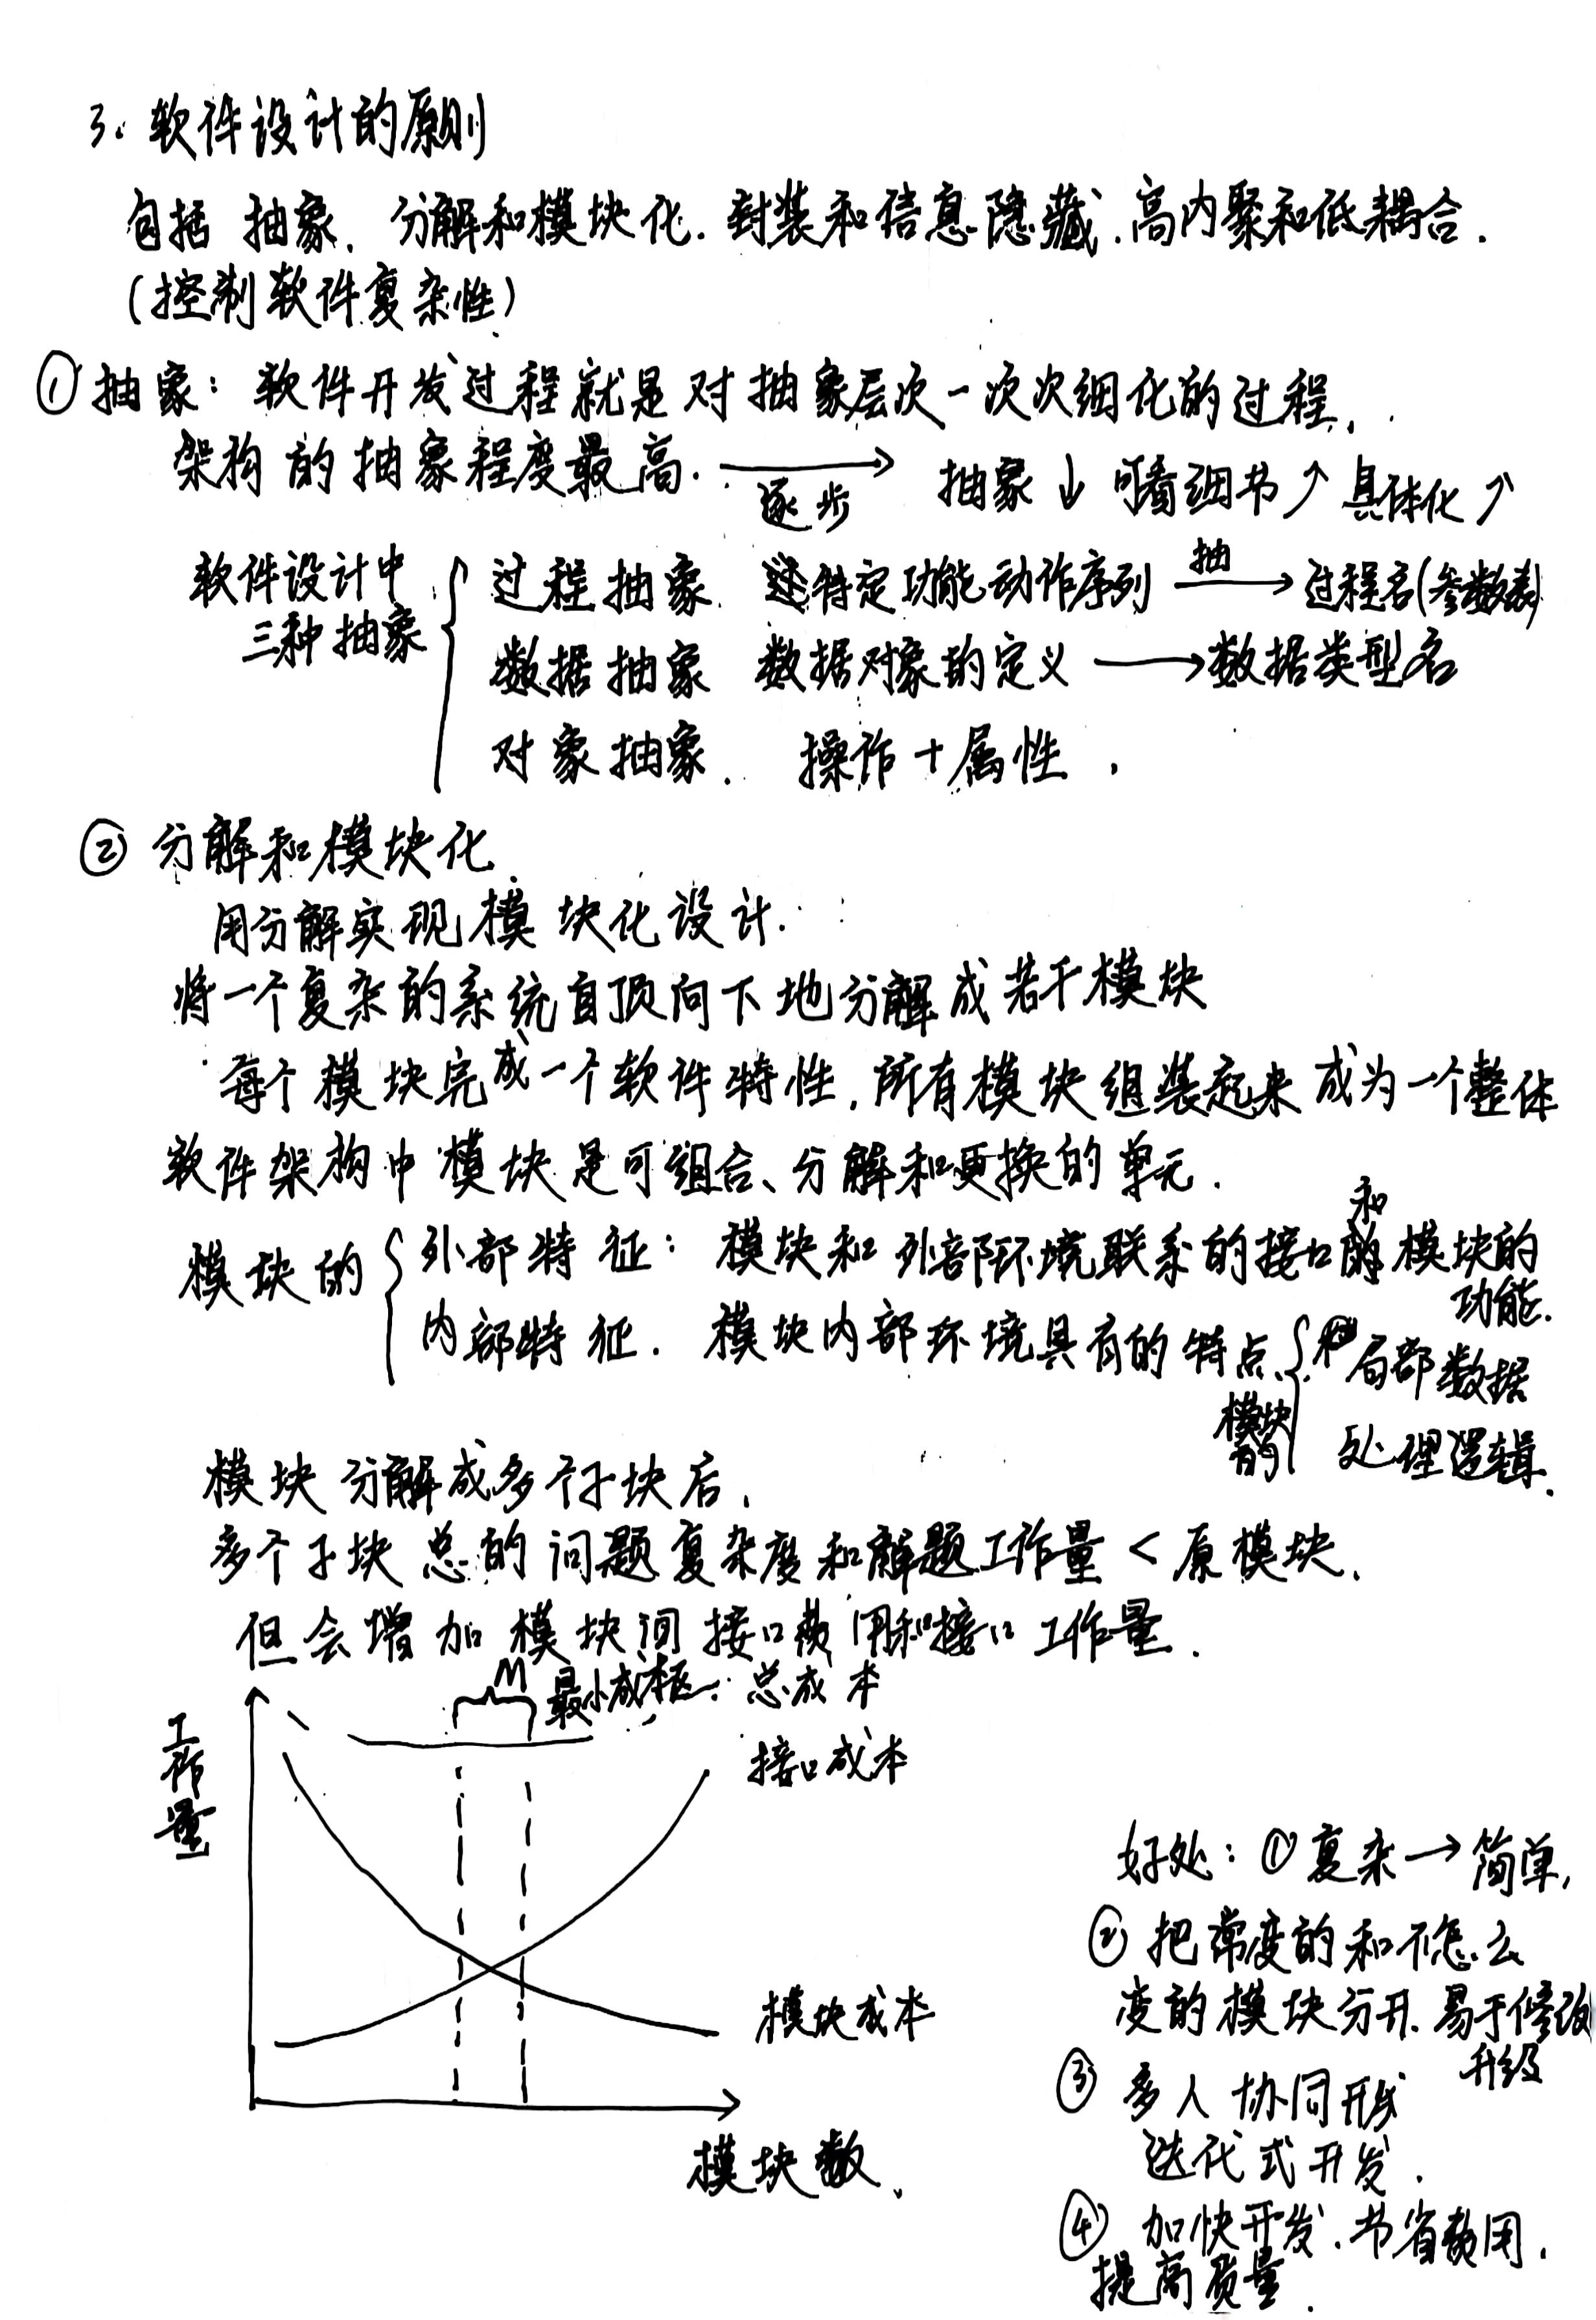 3. 软件设计的原则
包括 抽象、分解和模块化、封装和信息隐藏、高内聚和低耦合.
(控制软件复杂性)
① 抽象: 软件开发过程就是对抽象层次一次次细化的过程.
架构的抽象程度最高. 逐步→ 抽象↓ 可看细节↗ 具体化↗
软件设计中三种抽象
过程抽象. 特定功能动作序列 抽→ 过程名(参数表)
数据抽象 数据对象的定义 → 数据类型名
对象抽象. 操作+属性.
② 分解和模块化
用分解实现模块化设计.
将一个复杂的系统自顶向下地分解成若干模块
每个模块完成一个软件特性, 所有模块组装起来成为一个整体
软件架构中模块是可组合、分解和更换的单元.
模块的
外部特征: 模块和外部环境联系的接口和模块的功能.
内部特征. 模块内部环境具有的特点.
模块的
局部数据
处理逻辑.
模块分解成多个子块后,
多个子块总的问题复杂度和解题工作量 < 原模块.
但会增加模块间接口费用和接口工作量.
M
最小成本区. 总成本
接口成本
工作量
模块成本
模块数.
好处: ① 复杂→简单,
② 把常变的和不怎么
变的模块分开. 易于修改
升级
③ 多人协同开发
迭代式开发.
④ 加快开发. 节省费用.
提高质量.